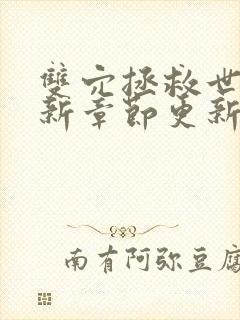 雙穴拯救世
新章節更新
南有阿弥豆腐